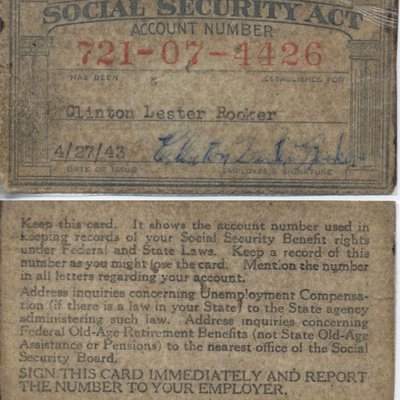 SOCIAL SECURITY ACT
ACCOUNT NUMBER
721-07-4426
HAS BEEN ESTABLISHED FOR
Clinton Lester Rooker
4/27/43 Clinton Lester Rooker
DATE OF ISSUE EMPLOYEE'S SIGNATURE
Keep this card. It shows the account number used in
keeping records of your Social Security Benefit rights
under Federal and State Laws. Keep a record of this
number as you might lose the card. Mention the number
in all letters regarding your account.
Address inquiries concerning Unemployment Compensa-
tion (if there is a law in your State) to the State agency
administering such law. Address inquiries concerning
Federal Old-Age Retirement Benefits (not State Old-Age
Assistance or Pensions) to the nearest office of the Social
Security Board.
SIGN THIS CARD IMMEDIATELY AND REPORT
THE NUMBER TO YOUR EMPLOYER.